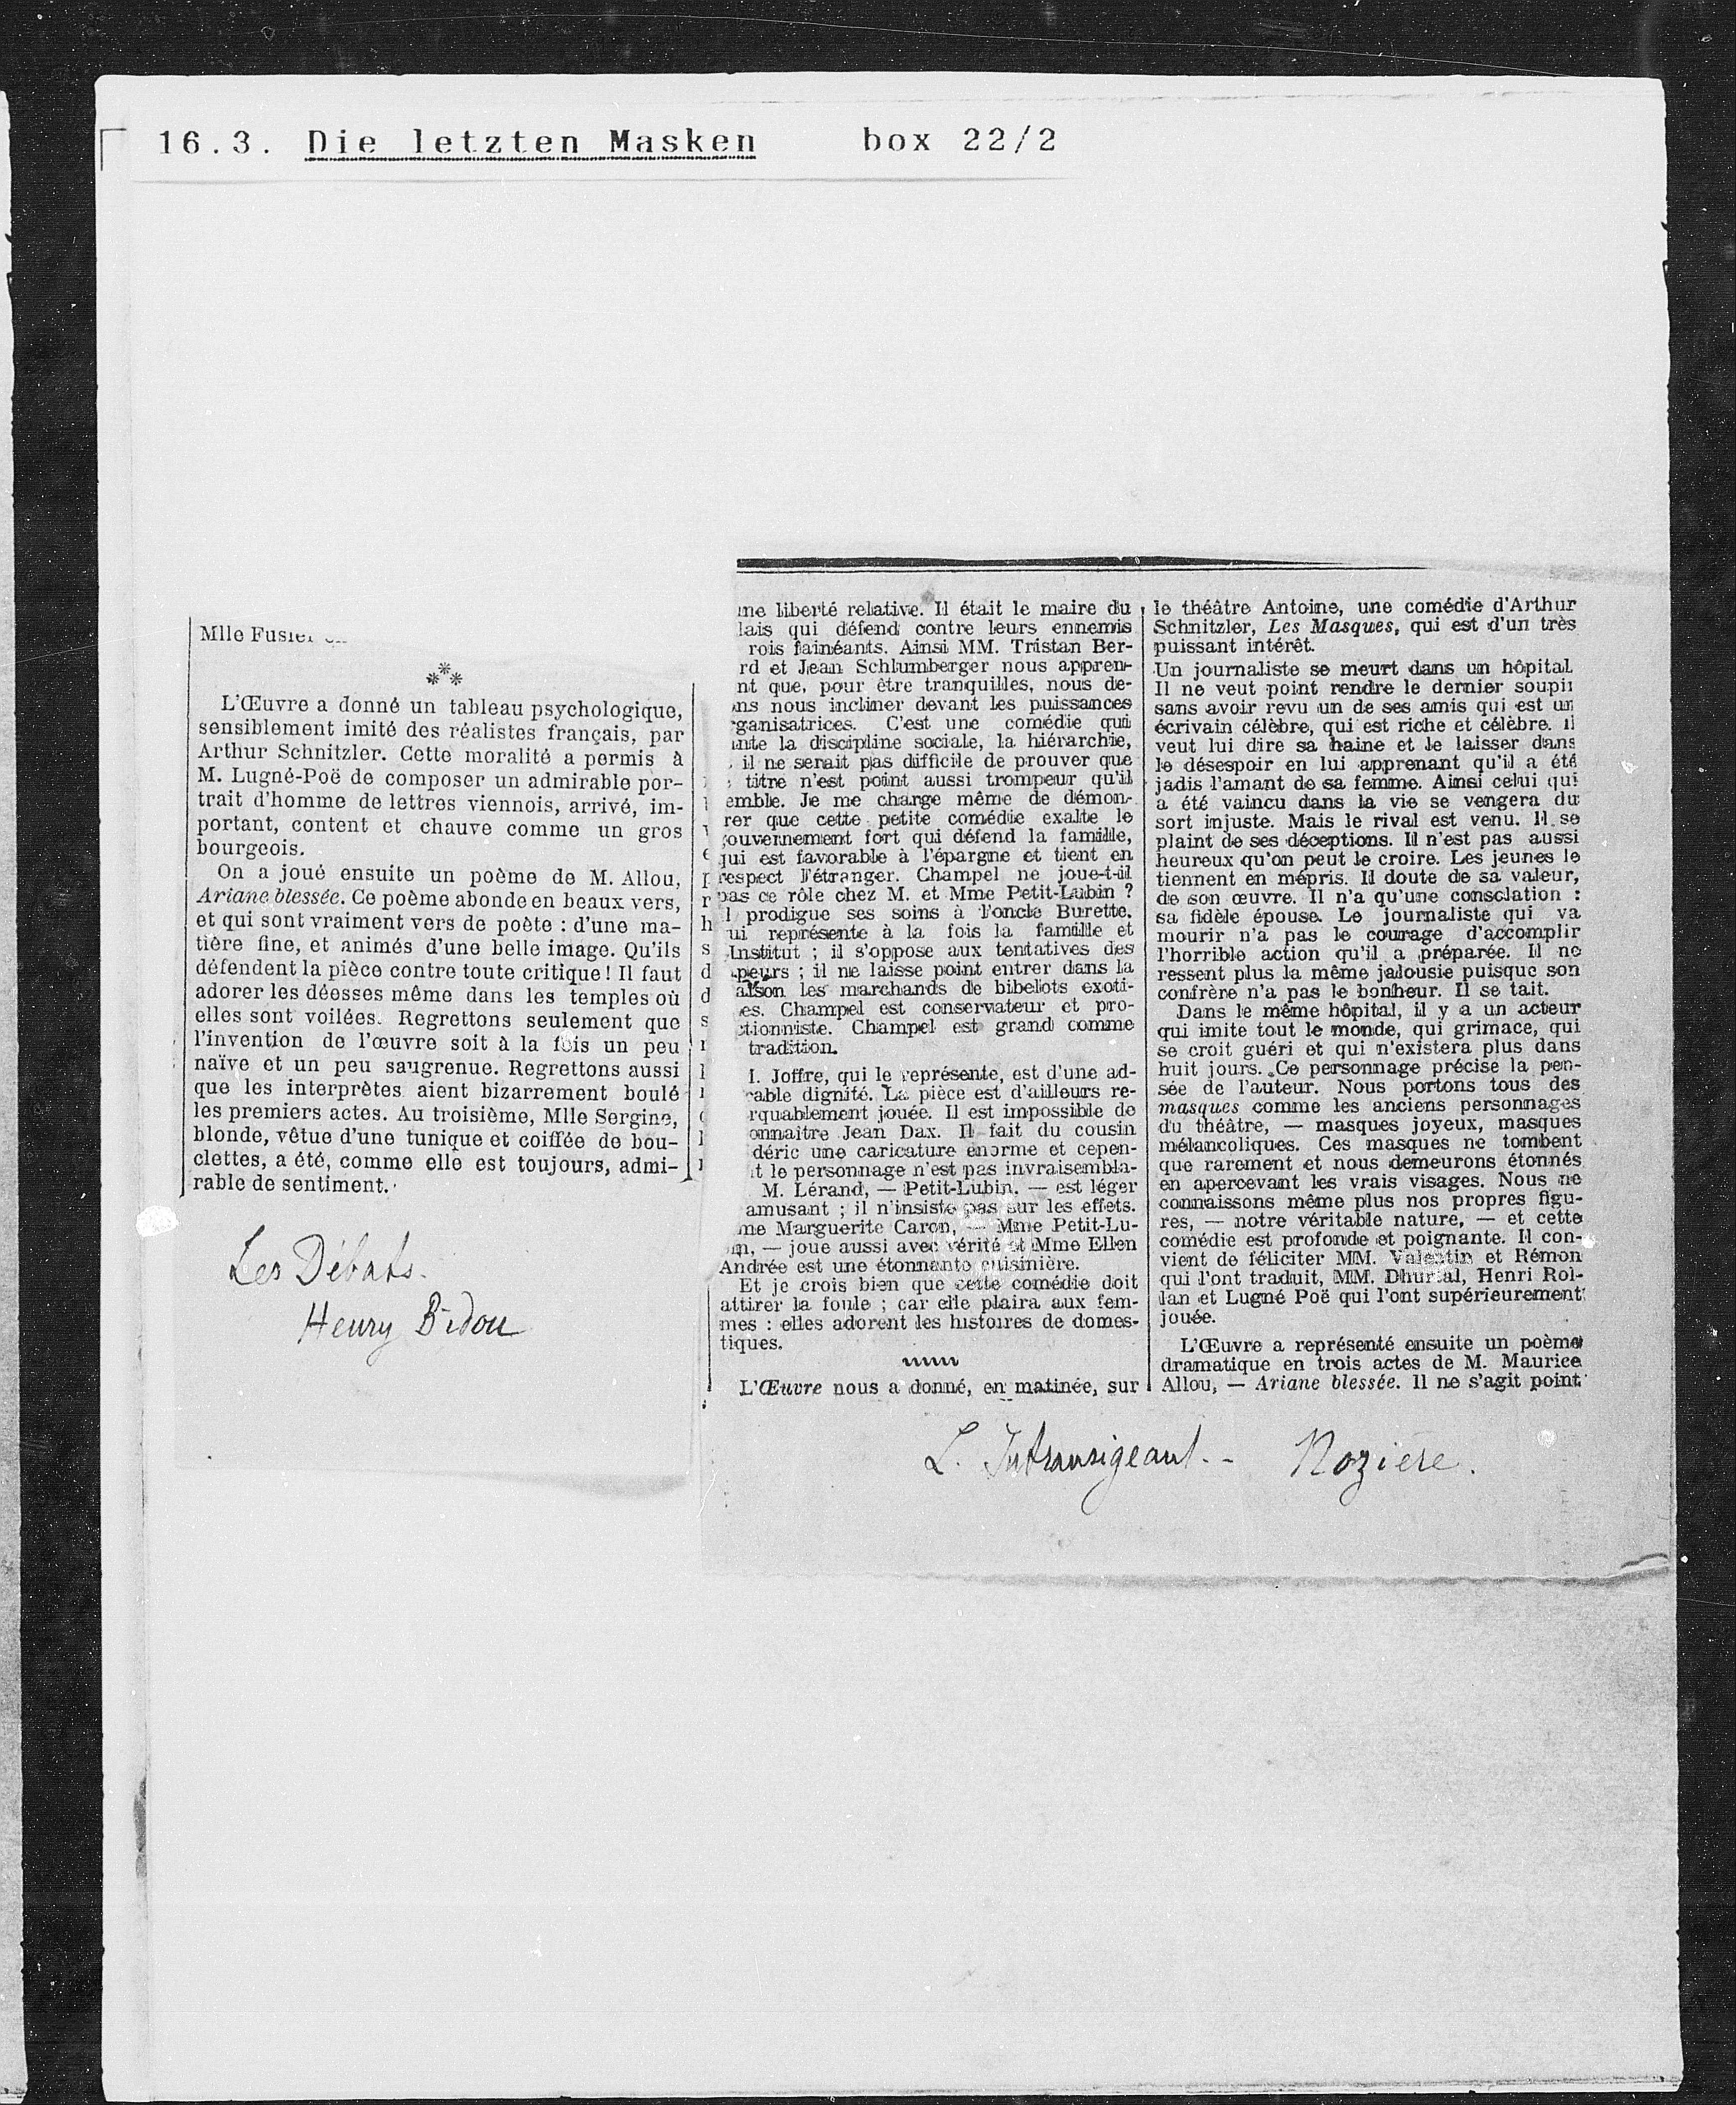 16.3. Die letzten Masken box 22/2
Mlle Fusier
L'Œuvre a donné un tableau psychologique,
sensiblement imité des réalistes français, par
Arthur Schnitzler. Cette moralité a permis à
M. Lugné-Poë de composer un admirable por-
trait d'homme de lettres viennois, arrivé, im-
portant, content et chauve comme un gros
bourgeois.
On a joué ensuite un poème de M. Allou,
Ariane blessée. Ce poème abonde en beaux vers,
et qui sont vraiment vers de poète : d'une ma-
tière fine, et animés d'une belle image. Qu'ils
défendent la pièce contre toute critique ! Il faut
adorer les déesses même dans les temples où
elles sont voilées. Regrettons seulement que
l'invention de l'œuvre soit à la fois un peu
naïve et un peu saugrenue. Regrettons aussi
que les interprètes aient bizarrement boulé
les premiers actes. Au troisième, Mlle Sergine,
blonde, vêtue d'une tunique et coiffée de bou-
clettes, a été, comme elle est toujours, admi-
rable de sentiment.
Les Débats.
Henry Bidou
me liberté relative. Il était le maire du
lais qui défend contre leurs ennemis
rois fainéants. Ainsi MM. Tristan Ber-
rd et Jean Schlumberger nous appren-
nt que, pour être tranquilles, nous de-
ns nous incliner devant les puissances
rganisatrices. C'est une comédie qui
nte la discipline sociale, la hiérarchie,
il ne serait pas difficile de prouver que
titre n'est point aussi trompeur qu'il
emble. Je me charge même de démon-
rer que cette petite comédie exalte le
ouvernement fort qui défend la famille,
qui est favorable à l'épargne et tient en
respect l'étranger. Champel ne joue-t-il
pas ce rôle chez M. et Mme Petit-Lubin ?
l prodigue ses soins à l'oncle Burette,
ui représente à la fois la famille et
Institut ; il s'oppose aux tentatives des
peurs ; il ne laisse point entrer dans la
aison les marchands de bibelots exoti-
es. Champel est conservateur et pro-
ctionniste. Champel est grand comme
tradition.
I. Joffre, qui le représente, est d'une ad-
rable dignité. La pièce est d'ailleurs re-
rquablement jouée. Il est impossible de
onnaitre Jean Dax. Il fait du cousin
déric une caricature énorme et cepen-
t le personnage n'est pas invraisembla-
M. Lérand, — Petit-Lubin, — est léger
amusant ; il n'insiste pas sur les effets.
me Marguerite Caron, — Mme Petit-Lu-
in, — joue aussi avec vérité et Mme Ellen
Andrée est une étonnante cuisinière.
Et je crois bien que cette comédie doit
attirer la foule ; car elle plaira aux fem-
mes : elles adorent les histoires de domes-
tiques.
L'Œuvre nous a donné, en matinée, sur
le théâtre Antoine, une comédie d'Arthur
Schnitzler, Les Masques, qui est d'un très
puissant intérêt.
Un journaliste se meurt dans un hôpital
Il ne veut point rendre le dernier soupir
sans avoir revu un de ses amis qui est un
écrivain célèbre, qui est riche et célèbre. Il
veut lui dire sa haine et le laisser dans
le désespoir en lui apprenant qu'il a été
jadis l'amant de sa femme. Ainsi celui qui
a été vaincu dans la vie se vengera du
sort injuste. Mais le rival est venu. Il se
plaint de ses déceptions. Il n'est pas aussi
heureux qu'on peut le croire. Les jeunes le
tiennent en mépris. Il doute de sa valeur,
de son œuvre. Il n'a qu'une consolation :
sa fidèle épouse. Le journaliste qui va
mourir n'a pas le courage d'accomplir
l'horrible action qu'il a préparée. Il ne
ressent plus la même jalousie puisque son
confrère n'a pas le bonheur. Il se tait.
Dans le même hôpital, il y a un acteur
qui imite tout le monde, qui grimace, qui
se croit guéri et qui n'existera plus dans
huit jours. Ce personnage précise la pen-
sée de l'auteur. Nous portons tous des
masques comme les anciens personnages
du théâtre, — masques joyeux, masques
mélancoliques. Ces masques ne tombent
que rarement et nous demeurons étonnés
en apercevant les vrais visages. Nous ne
connaissons même plus nos propres figu-
res, — notre véritable nature, — et cette
comédie est profonde et poignante. Il con-
vient de féliciter MM. Valentin et Rémon
qui l'ont traduit, MM. Dhurtal, Henri Rol-
lan et Lugné Poë qui l'ont supérieurement
jouée.
L'Œuvre a représenté ensuite un poème
dramatique en trois actes de M. Maurice
Allou, — Ariane blessée. Il ne s'agit point
L. Intransigeant. - Nozière.